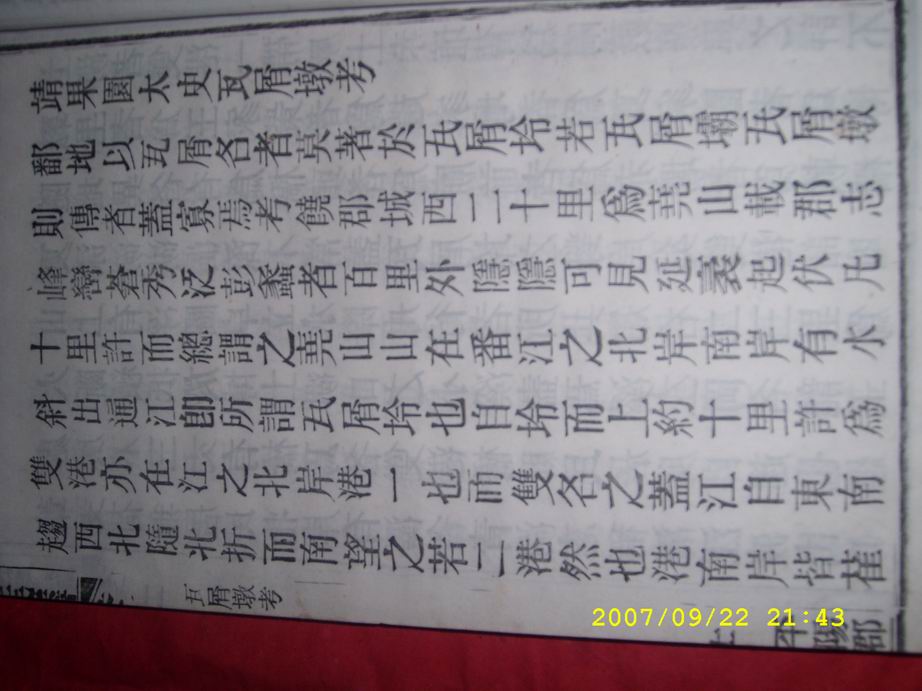 靖果園太史瓦屑墩考
鄱地以瓦屑名者莫著於瓦屑坽若瓦屑壩瓦屑墩
則傳者蓋寡焉考饒郡城西二十里爲堯山載郡志
峰巒蒼秀泛彭蠡者百里外隱隱可見延袤起伏凡
十里許而總謂之堯山山在番江之北岸南岸有水
斜出通江卽所謂瓦屑坽也自坽而上約十里許爲
雙港亦在江之北岸港一也而雙名之蓋江自東南
趨西北隨北折而南望之若一港然也港南岸皆萑
瓦屑墩考
平陽郡
2007/09/22 21:43